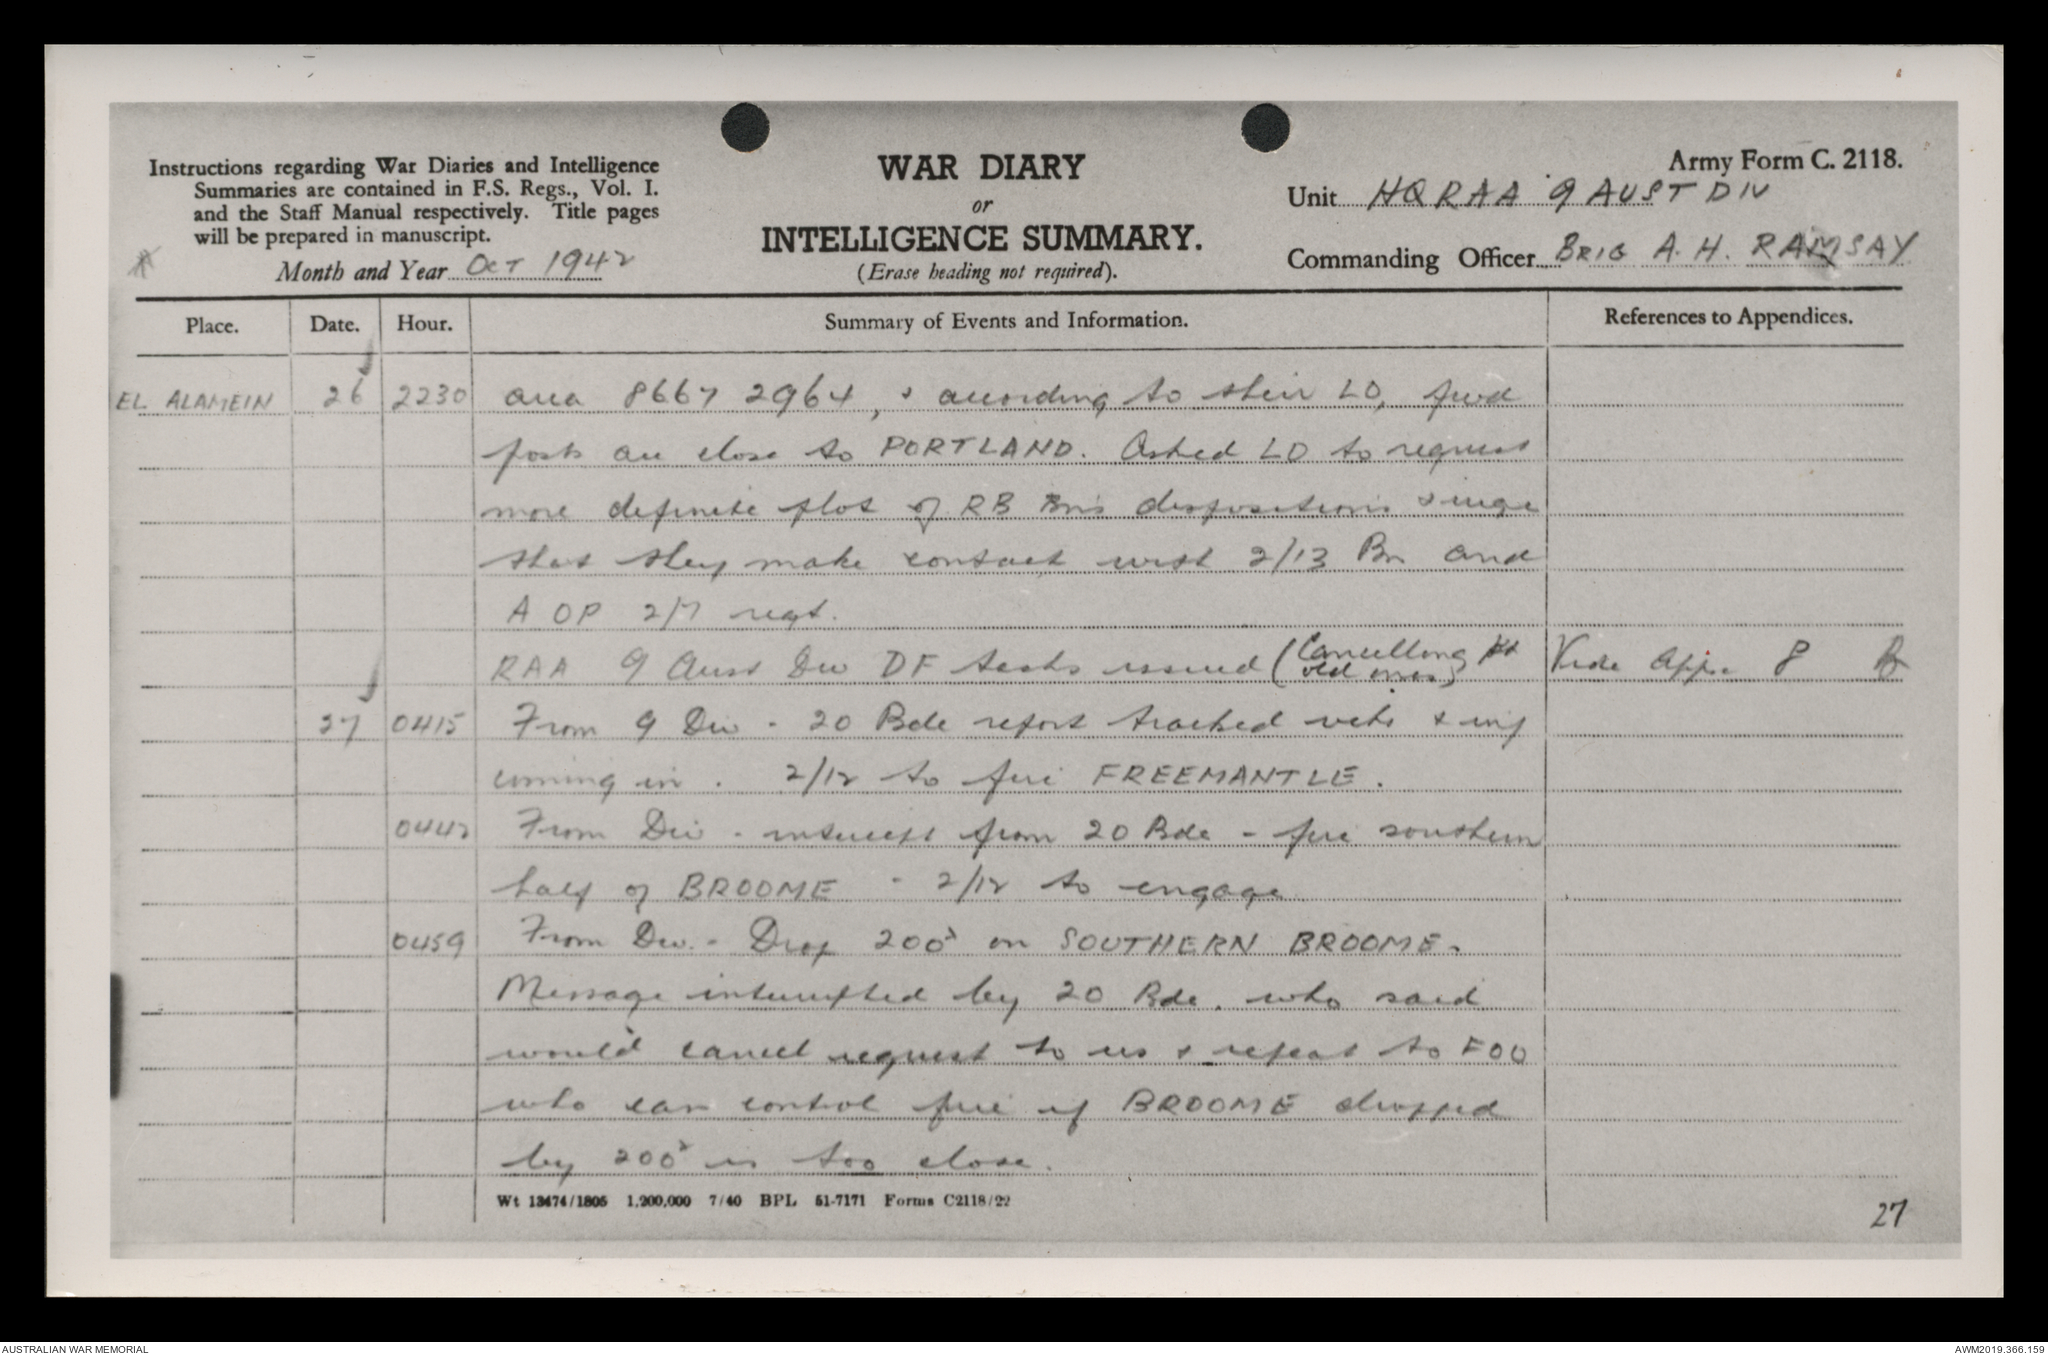 Army Form C. 2118.
Instructions regarding War Diaries and Intelligence
Summaries are contained in F.S. Regs., Vol. I.
and the Staff Manual respectively. Title pages
will be prepared in manuscript.
Month and Year OCT 1942
WAR DIARY
or
INTELLIGENCE SUMMARY.
(Erase heading not required).
Unit HQ RAA 9 AUST DIV
Commanding Officer BRIG A. H. RAMSAY
Place. Date. Hour. Summary of Events and Information. References to Appendices.
EL ALAMEIN 26 2230 area 8667 2964, & according to their LO, fwd
posts are close to PORTLAND. Asked LO to request
more definite plot of RB Bn's dispositions & urge
that they make contact with 2/13 Bn and
A OP 2/7 regt.
RAA 9 Aust Div DF tasks issued (Cancelling
old ones) Vide Appx 8
27 0415 From 9 Div - 20 Bde report tracked vehs & inf
coming in. 2/12 to fire FREEMANTLE.
0442 From Div - intercept from 20 Bde - fire southern
half of BROOME - 2/12 to engage
0459 From Div. - Drop 200x on SOUTHERN BROOME.
Message interrupted by 20 Bde. who said
would cancel request to us & repeat to FOO
who can control fire if BROOME dropped
by 200x is too close.
Wt 13474/1805 1,200,000 7/40 BPL 51-7171 Forms C2118/22
27
AUSTRALIAN WAR MEMORIAL
AWM2019.366.159